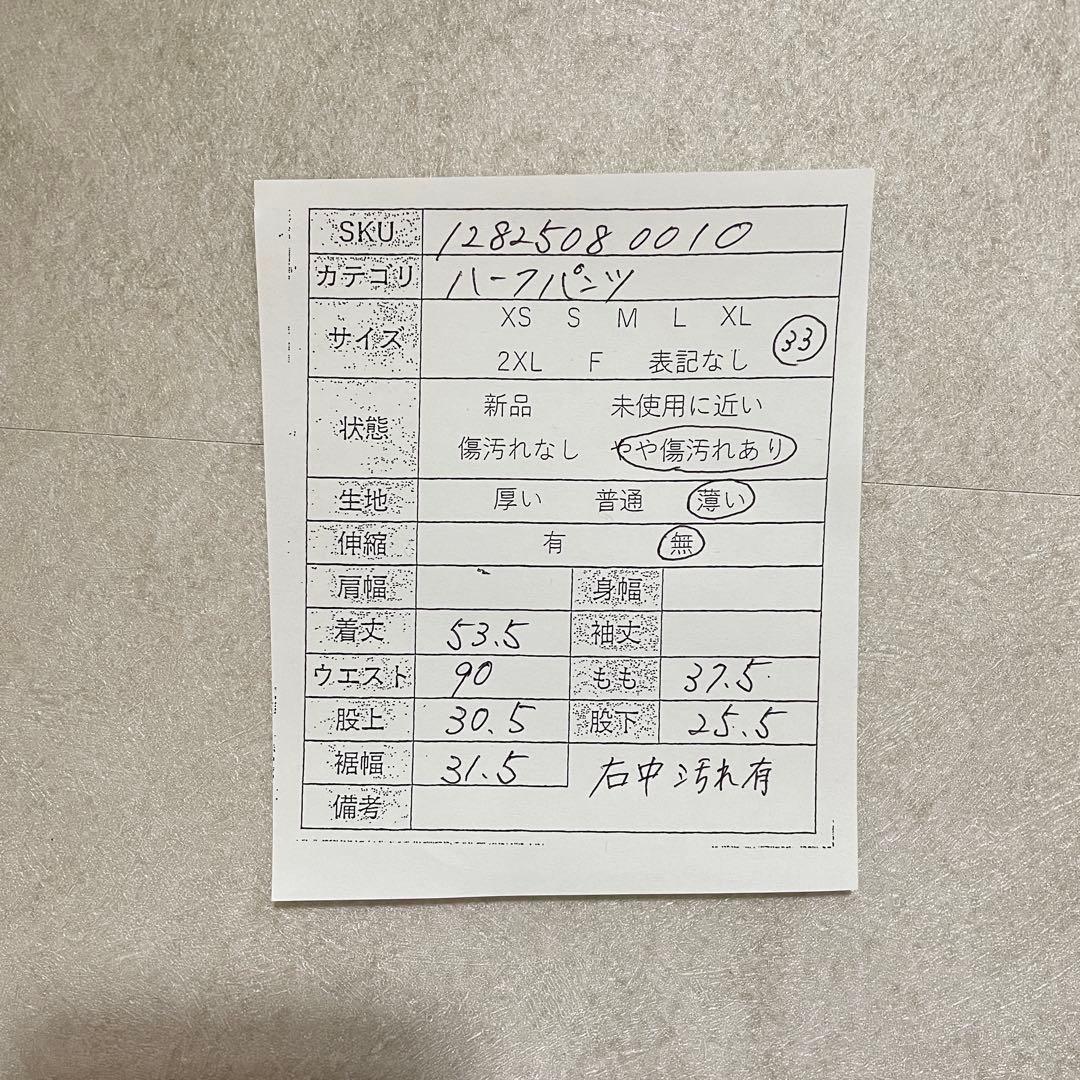 SKU 12825080010
カテゴリ ハーフパンツ
サイズ XS S M L XL 33
2XL F 表記なし
状態 新品 未使用に近い
傷汚れなし やや傷汚れあり
生地 厚い 普通 薄い
伸縮 有 無
肩幅 身幅
着丈 53.5 袖丈
ウエスト 90 もも 37.5
股上 30.5 股下 25.5
裾幅 31.5 右中汚れ有
備考